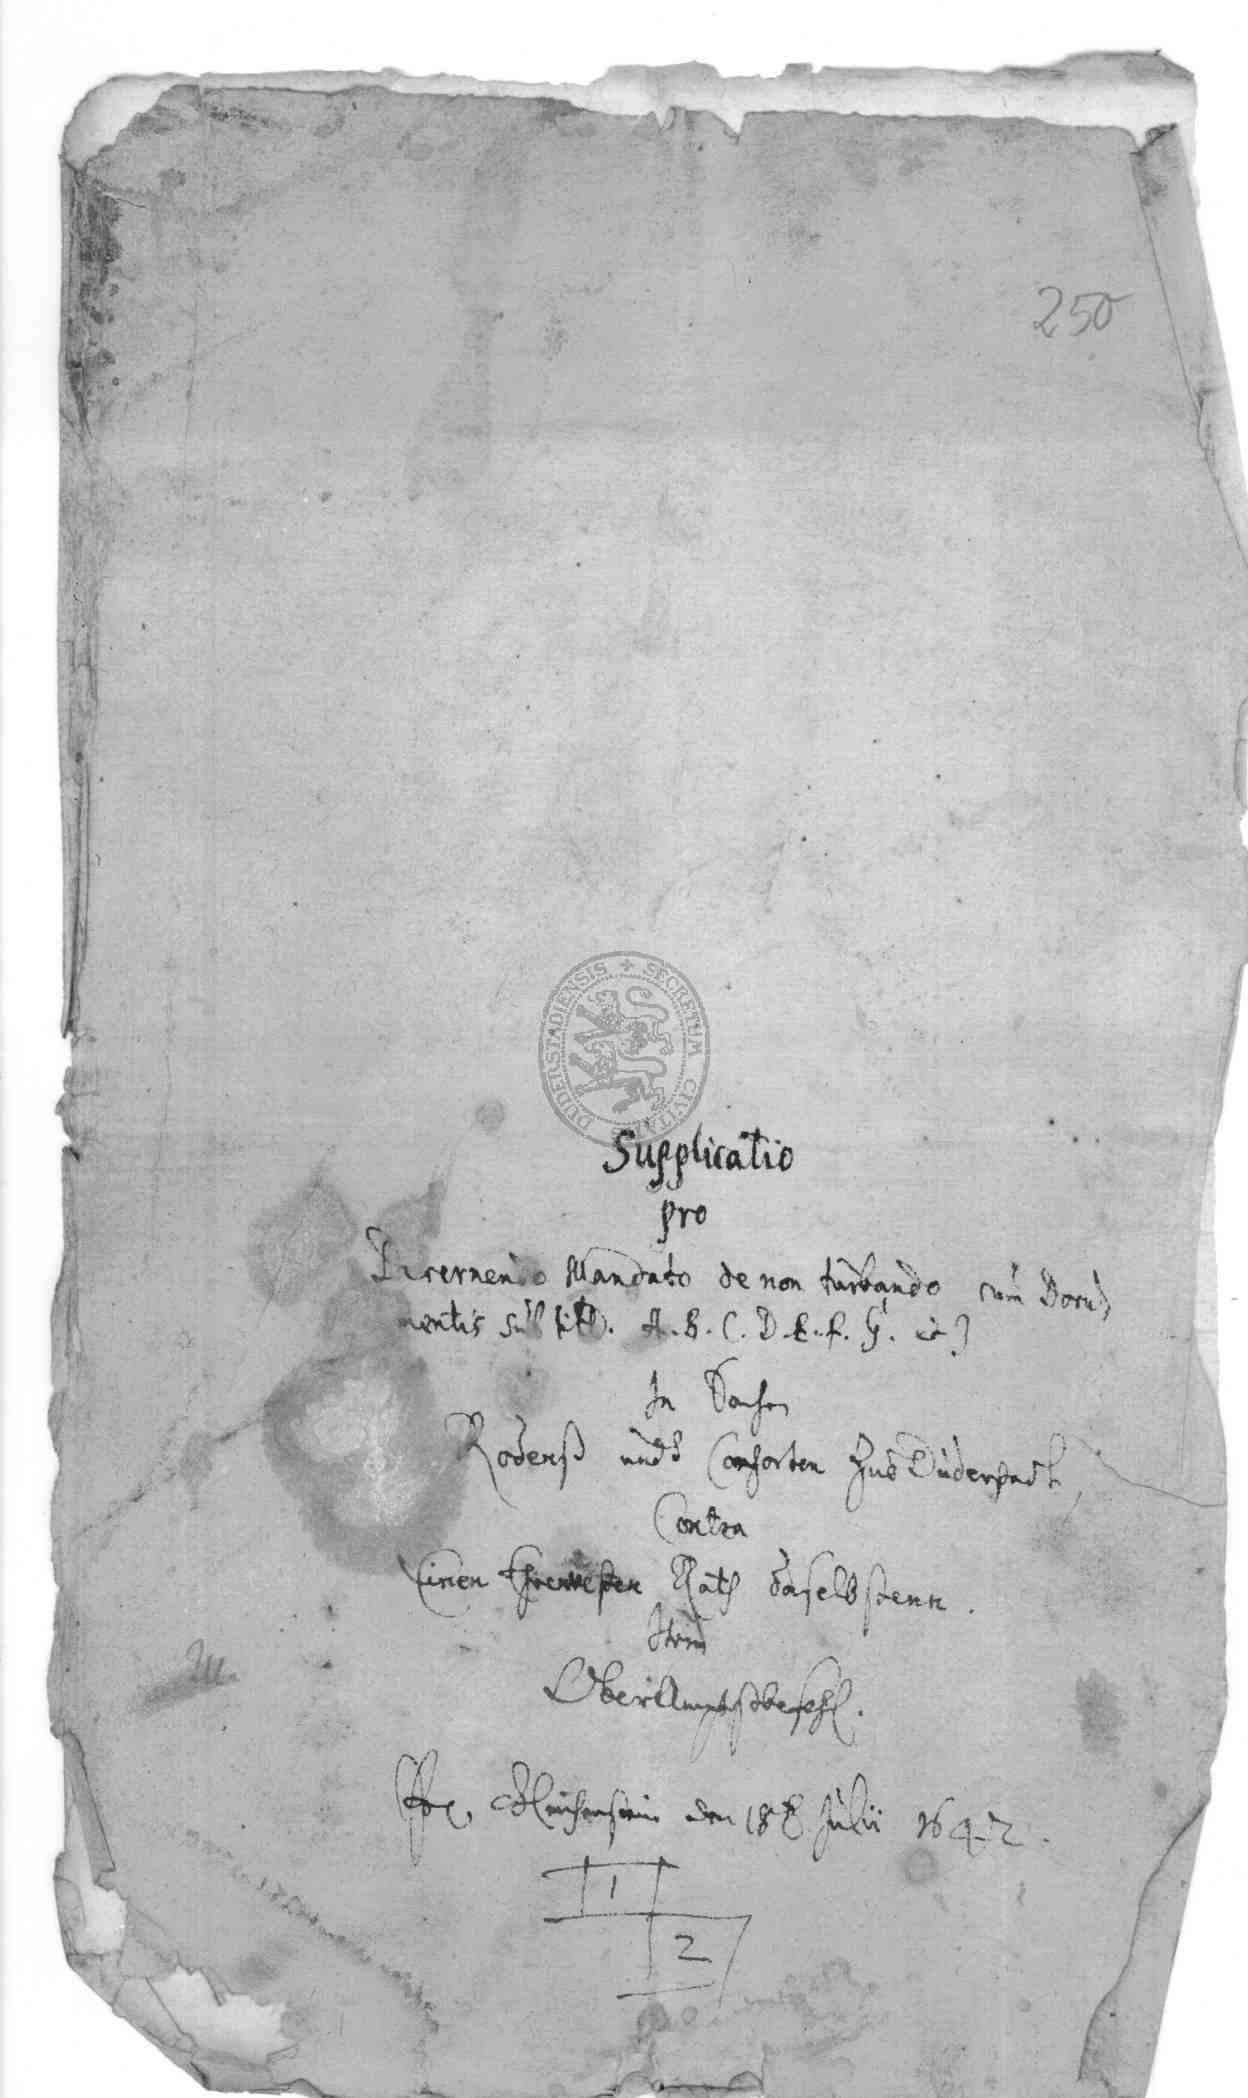 250
SECRETUM CIVITATIS DUDERSTADIENSIS
Supplicatio
pro
Decernendo Mandato de non turbando cum Docu
mentis sub litt. A. B. C. D. E. F. G. &c
In Sachen
Roderß undt Consorten zue Duderstadt,
Contra
Einen Ehrnvesten Rath daselbstenn.
Item
OberAmptsbefehl.
den 18 Julii 1642.
1
2